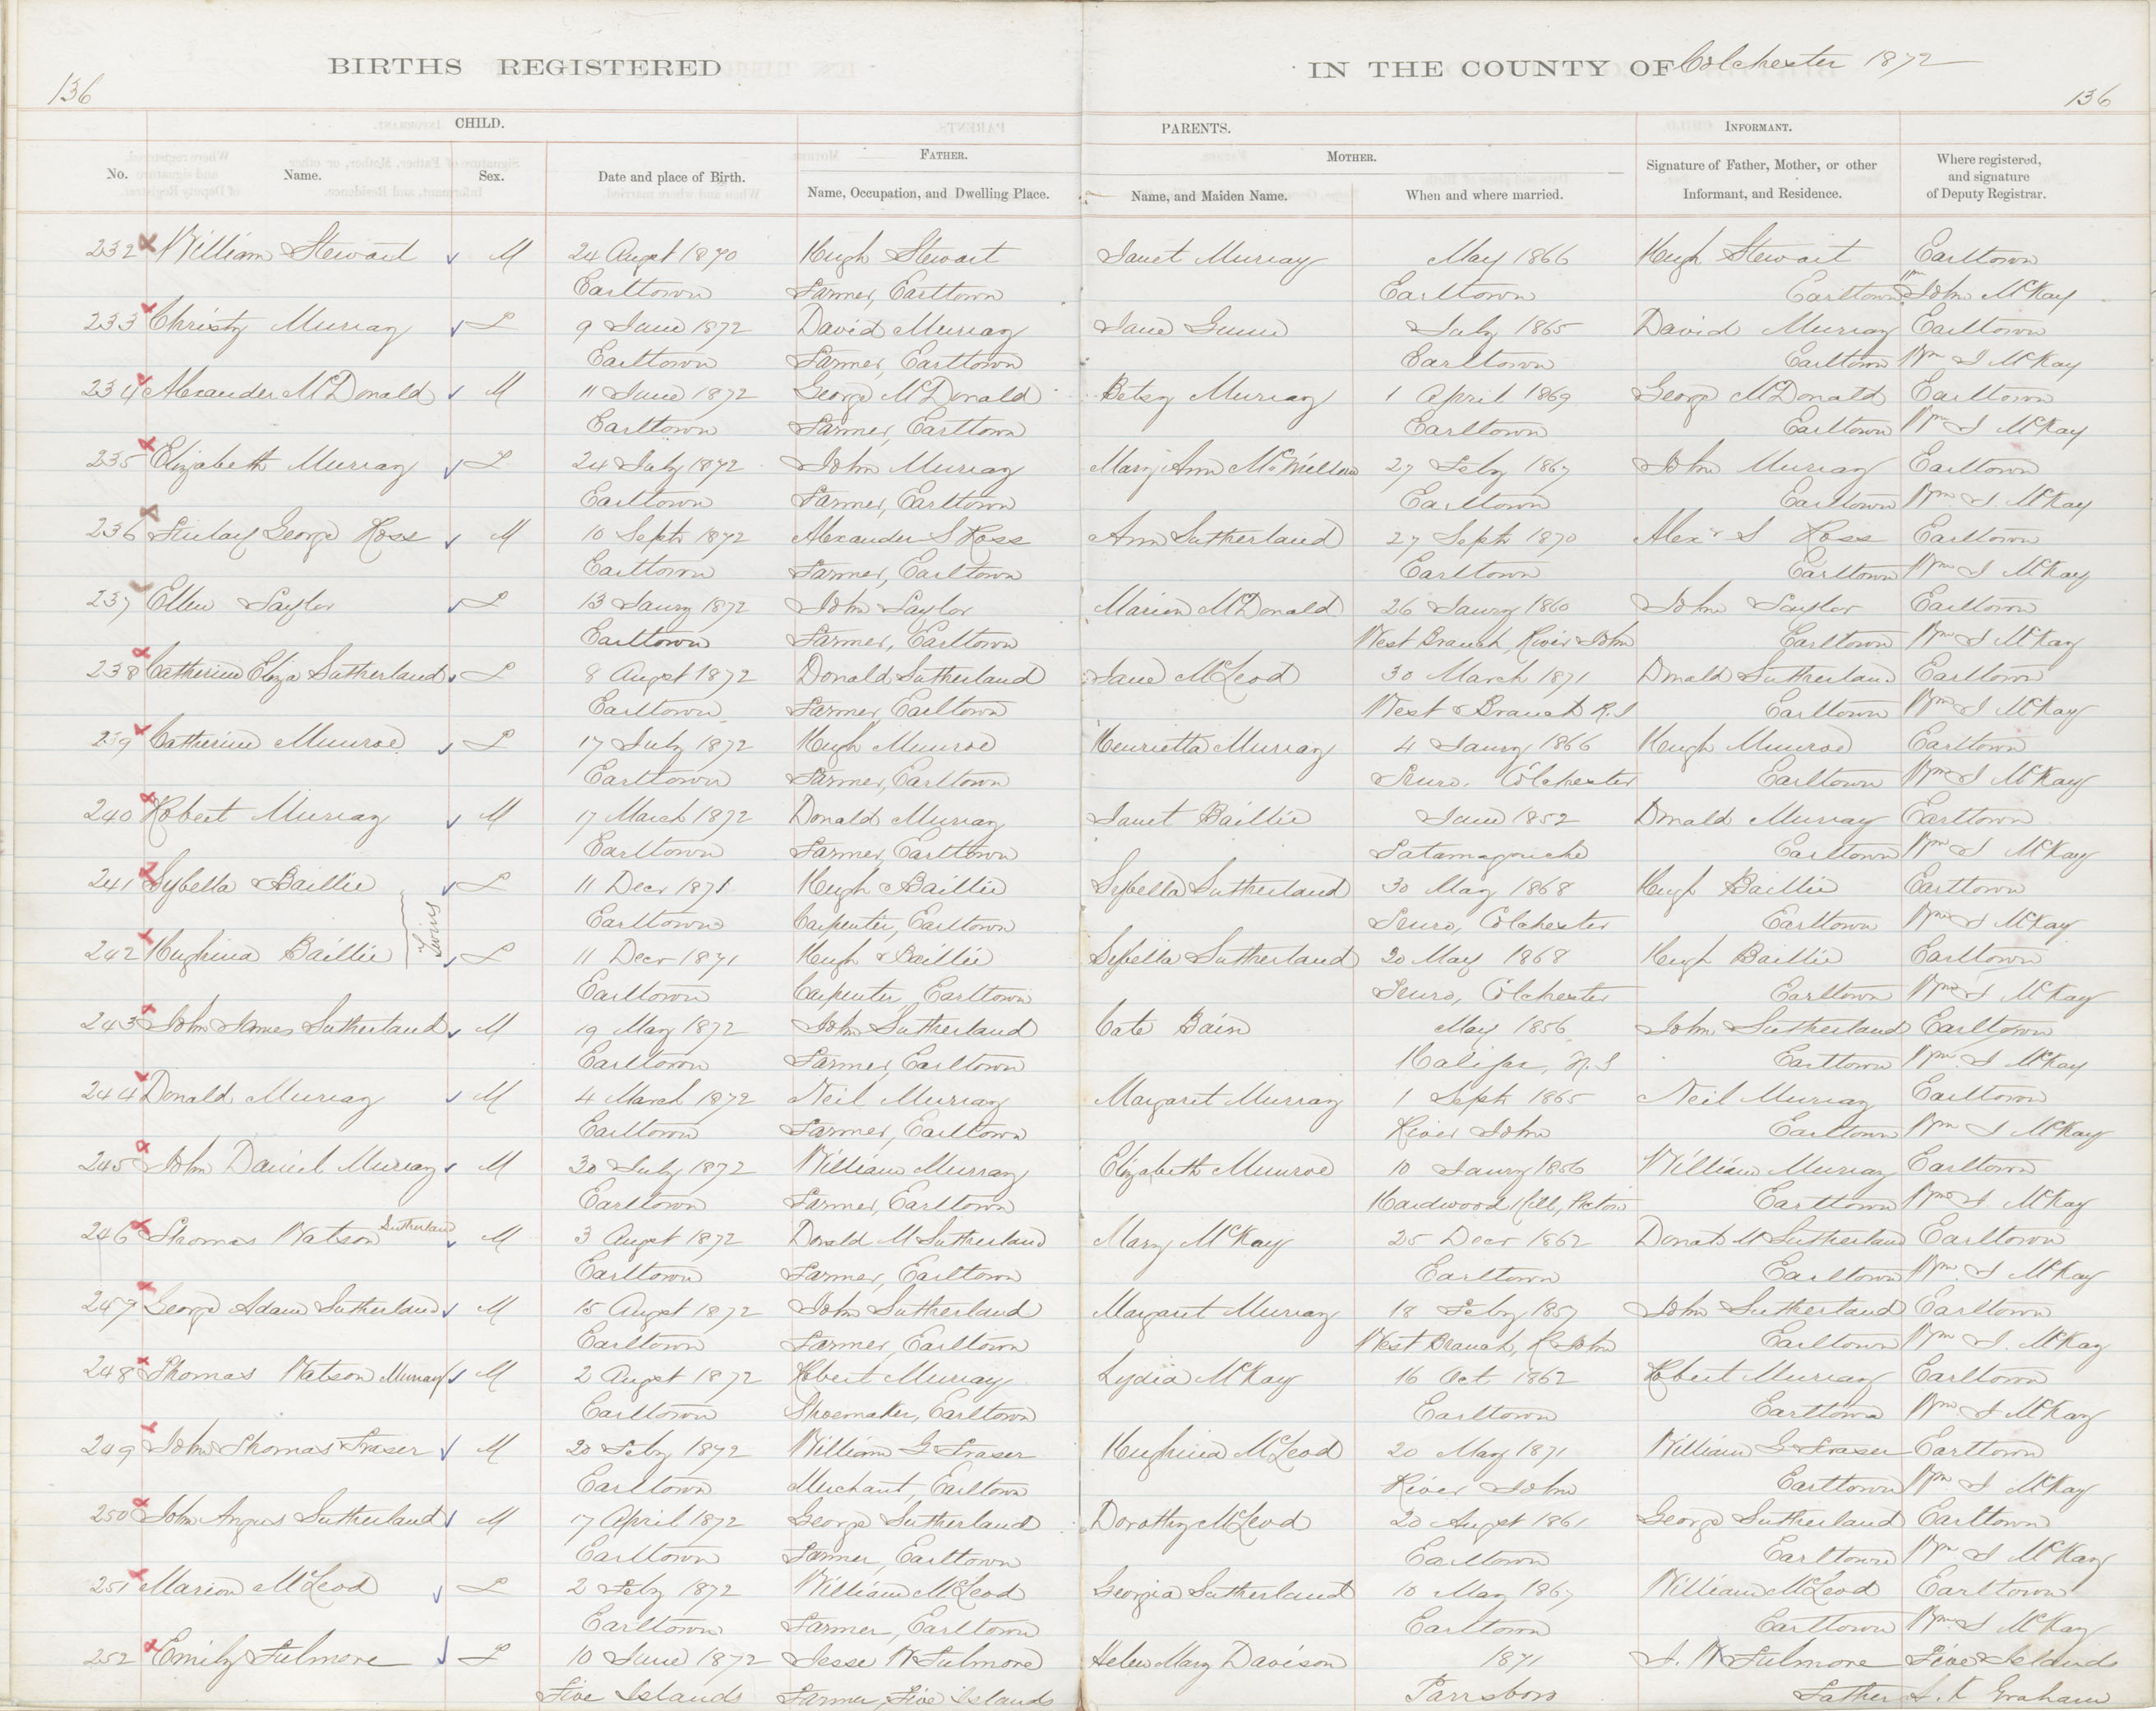 BIRTHS REGISTERED IN THE COUNTY OF Colchester 1872
136 136
CHILD. PARENTS. INFORMANT.
FATHER. MOTHER.
No. Name. Sex. Date and place of Birth. Name, Occupation, and Dwelling Place. Name, and Maiden Name. When and where married. Signature of Father, Mother, or other Informant, and Residence. Where registered, and signature of Deputy Registrar.
232 William Stewart M 24 Augst 1870 Hugh Stewart Janet Murray May 1866 Hugh Stewart Earltown
Earltown Farmer, Earltown Earltown Earltown Wm John McKay
233 Christy Murray F 9 June 1872 David Murray Jane Gunn July 1865 David Murray Earltown
Earltown Farmer, Earltown Earltown Earltown Wm J McKay
234 Alexander McDonald M 11 June 1872 George McDonald Betsy Murray 1 April 1869 George McDonald Earltown
Earltown Farmer, Earltown Earltown Earltown Wm J McKay
235 Elizabeth Murray F 24 July 1872 John Murray Mary Ann McMillan 27 Feby 1867 John Murray Earltown
Earltown Farmer, Earltown Earltown Earltown Wm J. McKay
236 George Ross M 10 Septr 1872 Alexander S Ross Ann Sutherland 27 Septr 1870 Alexr S Ross Earltown
Earltown Farmer, Earltown Earltown Earltown Wm J McKay
237 Ellen Taylor F 13 Jany 1872 John Taylor Marion McDonald 26 Jany 1860 John Taylor Earltown
Earltown Farmer, Earltown West Branch, River John Earltown Wm J McKay
238 Catherine Eliza Sutherland F 8 Augst 1872 Donald Sutherland Jane McLeod 30 March 1871 Donald Sutherland Earltown
Earltown Farmer, Earltown West Branch R.J Earltown Wm J McKay
239 Catherine Munroe F 17 July 1872 Hugh Munroe Henrietta Murray 4 Jany 1866 Hugh Munroe Earltown
Earltown Farmer, Earltown Truro, Colchester Earltown Wm J McKay
240 Robert Murray M 17 March 1872 Donald Murray Janet Baillie June 1852 Donald Murray Earltown
Earltown Farmer, Earltown Tatamagouche Earltown Wm J McKay
241 Sybella Baillie F 11 Decr 1871 Hugh Baillie Sybella Sutherland 30 May 1868 Hugh Baillie Earltown
Twins Earltown Carpenter, Earltown Truro, Colchester Earltown Wm J McKay
242 Hughina Baillie F 11 Decr 1871 Hugh Baillie Sybella Sutherland 20 May 1868 Hugh Baillie Earltown
Earltown Carpenter, Earltown Truro, Colchester Earltown Wm J McKay
243 John James Sutherland M 19 May 1872 John Sutherland Cate Bain May 1856 John Sutherland Earltown
Earltown Farmer, Earltown Halifax, N.S Earltown Wm J McKay
244 Donald Murray M 4 March 1872 Neil Murray Margaret Murray 1 Septr 1865 Neil Murray Earltown
Earltown Farmer, Earltown River John Earltown Wm J McKay
245 John Daniel Murray M 30 July 1872 William Murray Elizabeth Munroe 10 Jany 1856 William Murray Earltown
Earltown Farmer, Earltown Hardwood Hill, Pictou Earltown Wm J. McKay
246 Thomas Watson Sutherland M 3 Augst 1872 Donald M Sutherland Mary McKay 25 Decr 1862 Donald M Sutherland Earltown
Earltown Farmer, Earltown Earltown Earltown Wm J McKay
247 George Adam Sutherland M 15 Augst 1872 John Sutherland Margaret Murray 18 Feby 1857 John Sutherland Earltown
Earltown Farmer, Earltown West Branch, R John Earltown Wm J. McKay
248 Thomas Watson Murray M 2 Augst 1872 Robert Murray Lydia McKay 16 Oct 1862 Robert Murray Earltown
Earltown Shoemaker, Earltown Earltown Earltown Wm J McKay
249 John Thomas Fraser M 20 Feby 1872 William G Fraser Hughina McLeod 20 May 1871 William G Fraser Earltown
Earltown Merchant, Earltown River John Earltown Wm J McKay
250 John Angus Sutherland M 17 April 1872 George Sutherland Dorothy McLeod 20 Augst 1861 George Sutherland Earltown
Earltown Farmer, Earltown Earltown Earltown Wm J McKay
251 Marion McLeod F 2 Feby 1872 William McLeod Georgia Sutherland 10 May 1867 William McLeod Earltown
Earltown Farmer, Earltown Earltown Earltown Wm J McKay
252 Emily Fulmore F 10 June 1872 Jesse W Fulmore Helen Mary Davison 1871 J. W Fulmore Five Islands
Five Islands Farmer, Five Islands Parrsboro Father A. K Graham